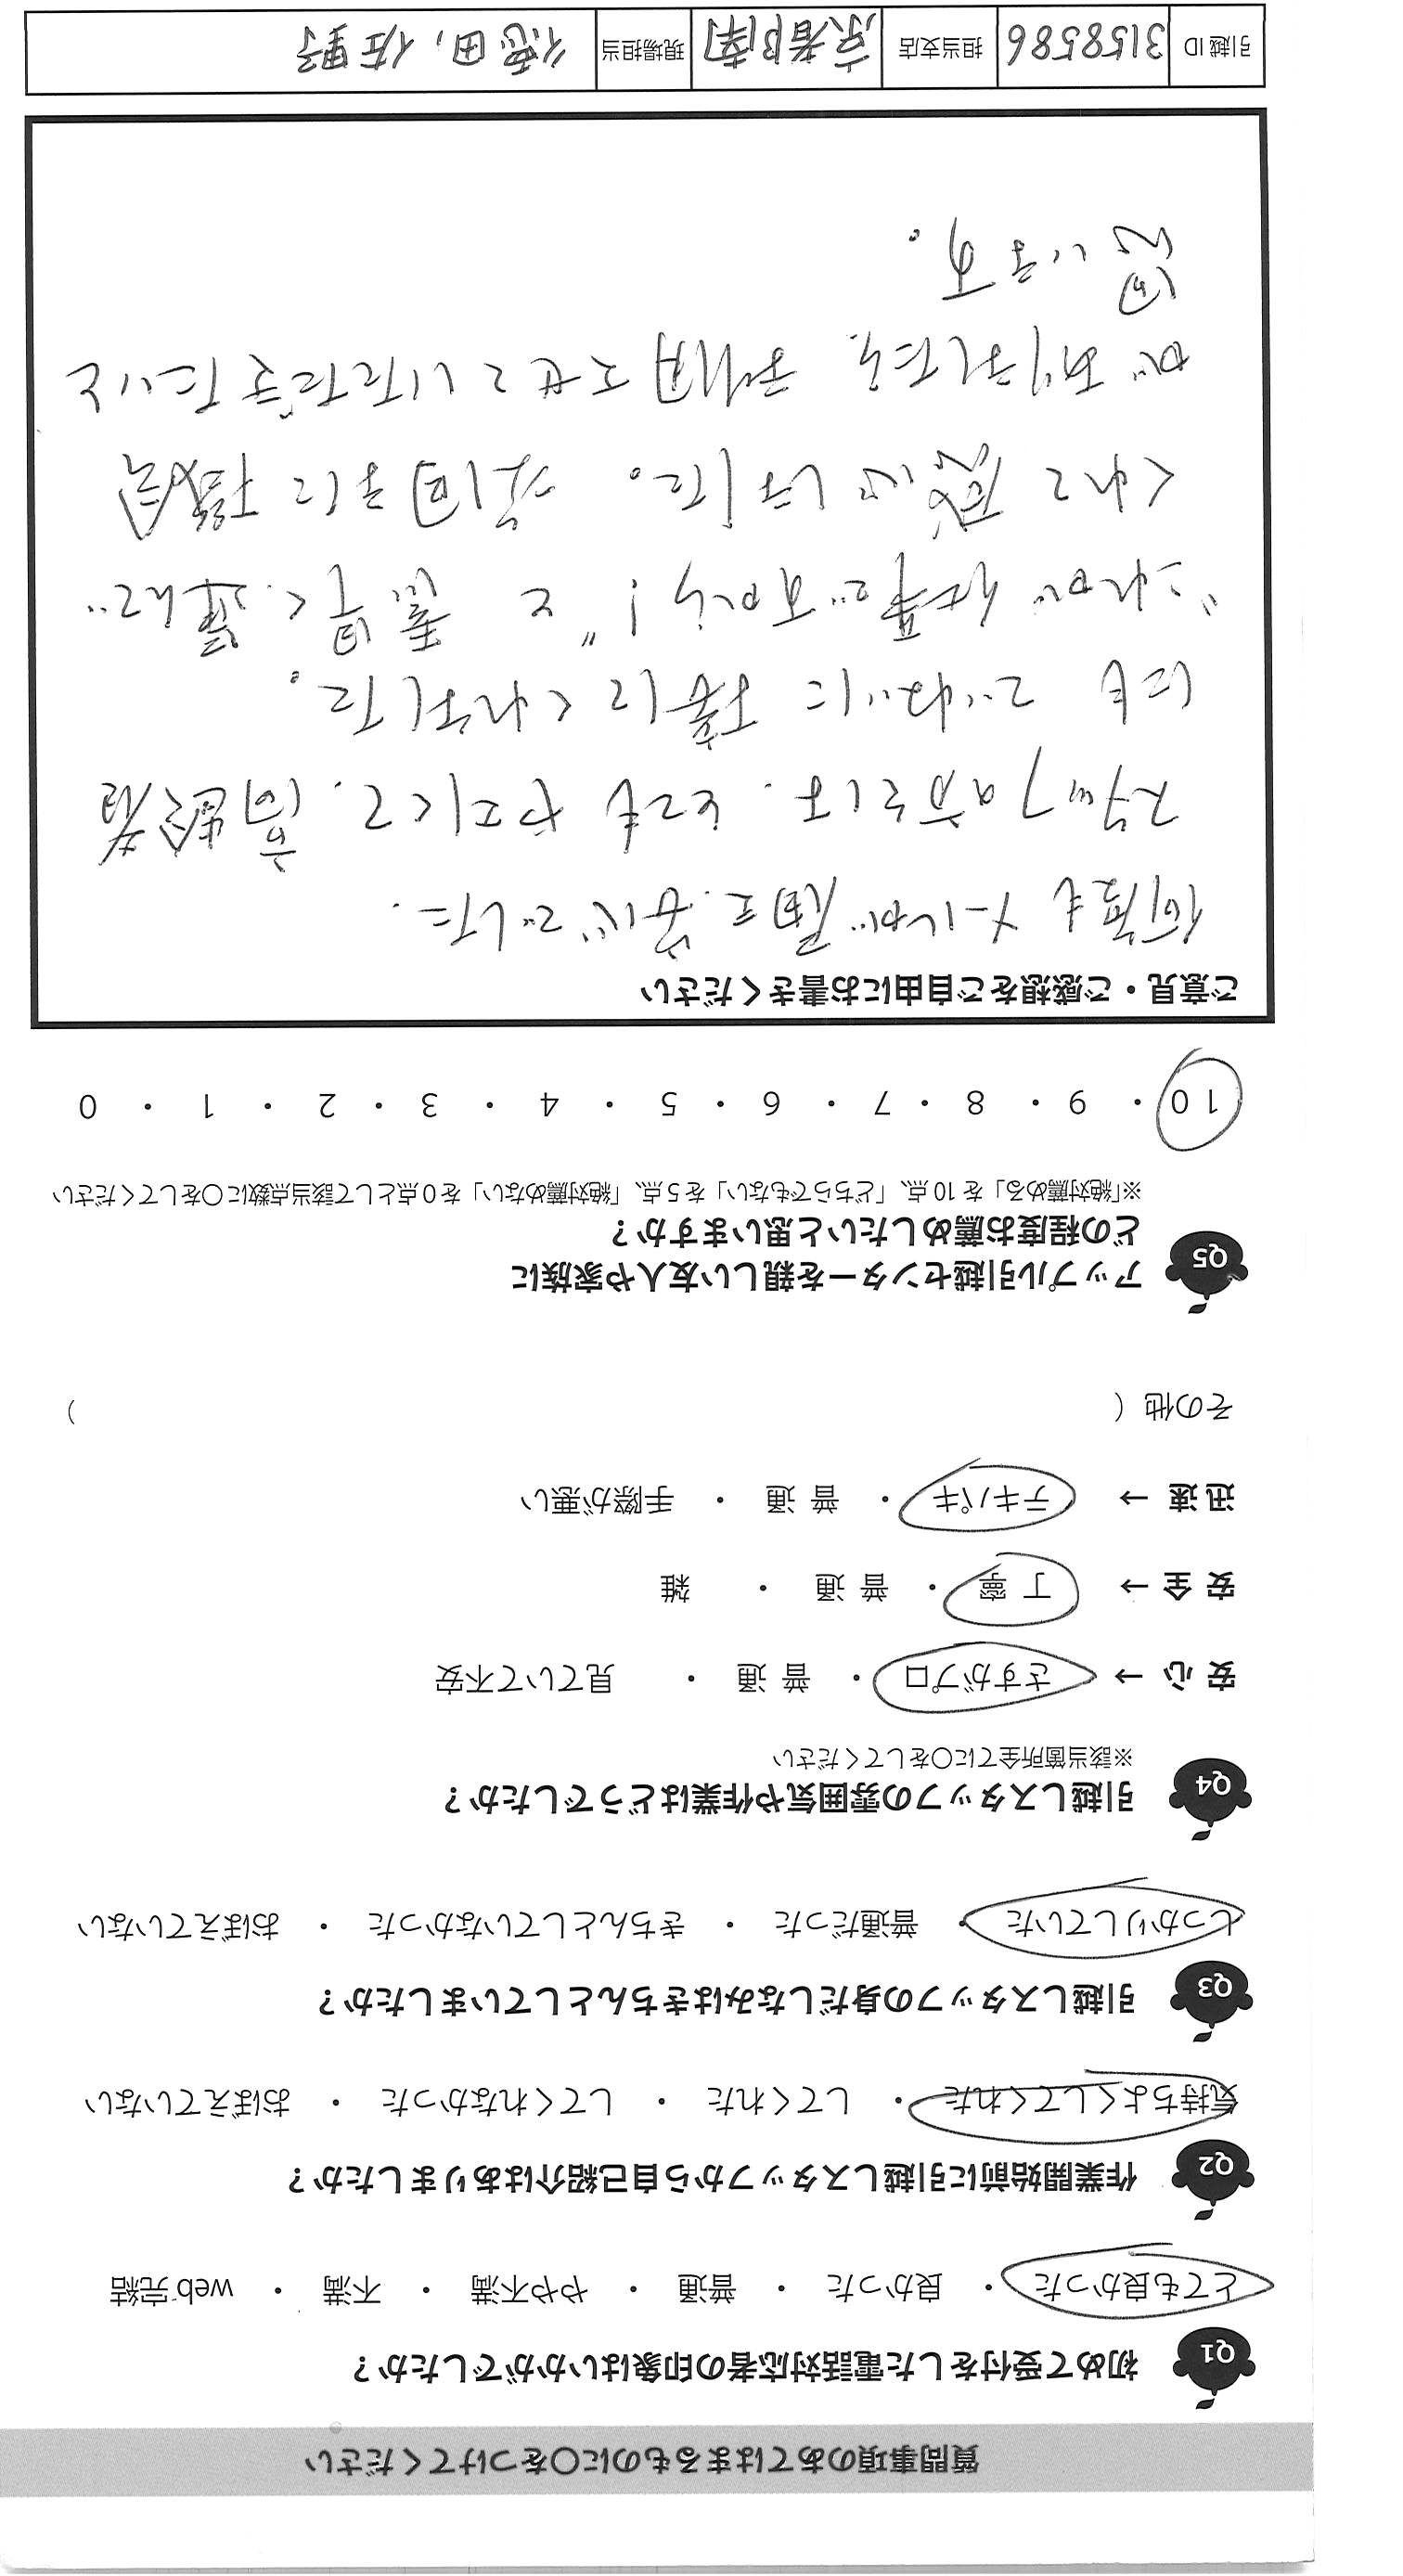 質問事項のあてはまるものに○をつけてください
Q1 初めて受付をした電話対応者の印象はいかがでしたか？
とても良かった ・ 良かった ・ 普通 ・ やや不満 ・ 不満 ・ web完結
Q2 作業開始前に引越しスタッフから自己紹介はありましたか？
気持ちよくしてくれた ・ してくれた ・ してくれなかった ・ おぼえていない
Q3 引越しスタッフの身だしなみはきちんとしていましたか？
しっかりしていた ・ 普通だった ・ きちんとしていなかった ・ おぼえていない
Q4 引越しスタッフの雰囲気や作業はどうでしたか？
※該当箇所全てに○をしてください
安心 → さすがプロ ・ 普通 ・ 見ていて不安
安全 → 丁寧 ・ 普通 ・ 雑
迅速 → テキパキ ・ 普通 ・ 手際が悪い
その他（ ）
Q5 アップル引越センターを親しい友人や家族に
どの程度お薦めしたいと思いますか？
※「絶対薦める」を10点、「どちらでもない」を5点、「絶対薦めない」を0点として該当点数に○をしてください
10 ・ 9 ・ 8 ・ 7 ・ 6 ・ 5 ・ 4 ・ 3 ・ 2 ・ 1 ・ 0
ご意見・ご感想をご自由にお書きください
何度もメールが届き安心でした.
スタッフの方々は、とても やさしくて、高齢者
にも ていねいに 接してくれました。
"これが仕事ですから！"と 素早く、運んで
くれて 感心しました。 次回また 機会
がありましたら、利用させていただきたいと
思います。
引越ID 3158586 担当支店 京都南 現場担当 徳田, 佐野